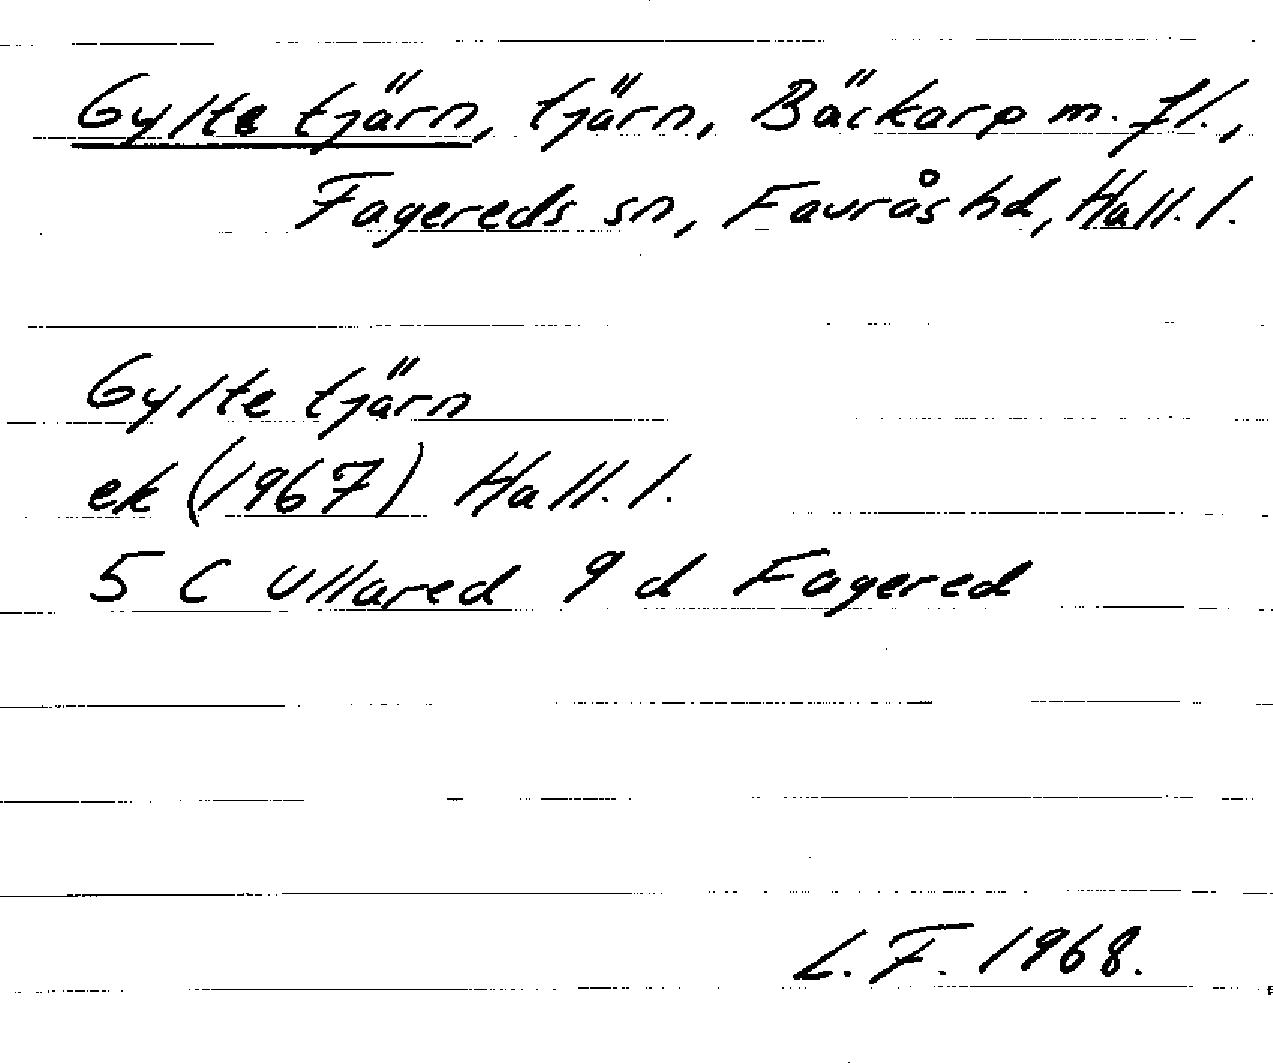 Gylte tjärn, tjärn, Bäckarp m. fl.,
Fagereds sn, Faurås hd, Hall. l.
Gylte tjärn
ek (1967) Hall. l.
5 C Ullared 9 d Fagered
L. F. 1968.